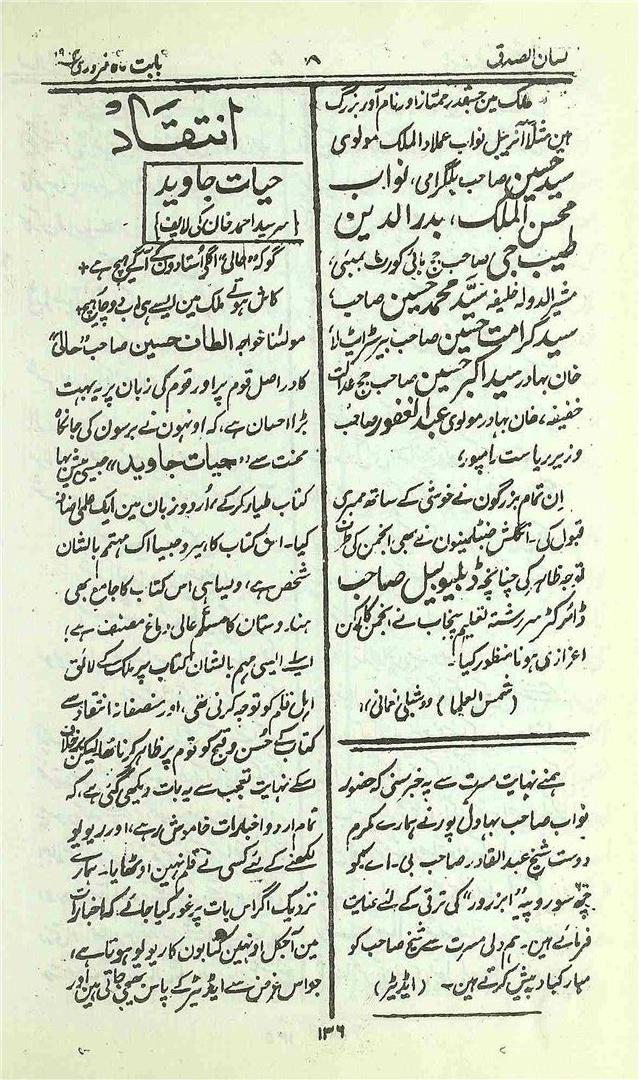 لسان الصدق
۸
بابت ماہ فروری
ملک مین جسقدر ممتاز اور نام آور بزرگ
ہین مثلاً آنریبل نواب عماد الملک مولوی
سید حسین صاحب بلگرامی، نواب
محسن الملک، بدر الدین
طیب جی صاحب جج ہائی کورٹ بمبئی،
مشیر الدولہ خلیفہ سید محمد حسین صاحب،
سید کرامت حسین صاحب بیرسٹرایٹ لا،
خان بہادر سید اکبر حسین صاحب جج عدالت
خفیفہ، خان بہادر مولوی عبد الغفور صاحب
وزیر ریاست رامپور،
اِن تمام بزرگون نے خوشی کے ساتھ ممبری
قبول کی۔ انگلش جنٹلمینون نے بھی انجمن کی طرف
توجہ ظاہر کی چنانچہ ڈبلیو بیل صاحب
ڈائرکٹر سررشتہ تعلیم پنجاب نے انجمن کا رکن
اعزازی ہونا منظور کیا۔
(شمس العلما) شبلی نعمانی
ہمنے نہایت مسرت سے یہ خبر سنی کہ حضور
نواب صاحب بہاول پور نے ہمارے مکرم
دوست شیخ عبد القادر صاحب بی۔اے کو
چھ سو روپیہ "ابزرور" کی ترقی کے لئے عنایت
فرمائے ہین۔ ہم دلی مسرت سے شیخ صاحب کو
مبارکباد پیش کرتے ہین۔ (اڈیٹر)
انتقاد
حیات جاوید
{سر سید احمد خان کی لایف}
گو کہ "حالی" اگلے اُستادون کے آگے ہیچ ہے
کاش ہوتے ملک مین ایسے ہی اب دو چار ہیچ
مولٰنا خواجہ الطاف حسین صاحب "حالی"
کا در اصل قوم پر اور قوم کی زبان پر یہ بہت
بڑا احسان ہے، کہ اونہون نے برسون کی جانکاہ
محنت سے "حیات جاوید" جیسی بیش بہا
کتاب طیار کرکے، اُردو زبان مین ایک علمی اضافہ
کیا۔ اس کتاب کا ہیرو جیسا اک مہتم بالشان
شخص ہے، ویسا ہی اس کتاب کا جامع بھی
ہندوستان کا مسلم عالی دماغ مصنف ہے؛
اسلئے ایسی مہتم بالشان کتاب پر ملک کے لائق
اہل قلم کو توجہ کرنی تھی، اور منصفانہ انتقاد سے
کتاب کے حُسن و قبح کو قوم پر ظاہر کرنا تھا، لیکن برخلاف
اسکے نہایت تعجب سے یہ بات دیکھی گئی ہے، کہ
تمام اردو اخبارات خاموش رہے، اور ریویو
لکھنے کے لئے کسی نے قلم نہین اوٹھایا۔ ہمارے
نزدیک اگر اس بات پر غور کیا جائے، کہ اخبارات
مین آجکل اونہین کتابون کا ریویو ہوتا ہے،
جو اس غرض سے اڈیٹر کے پاس بھیجی جاتی ہین اور
۱۳۶